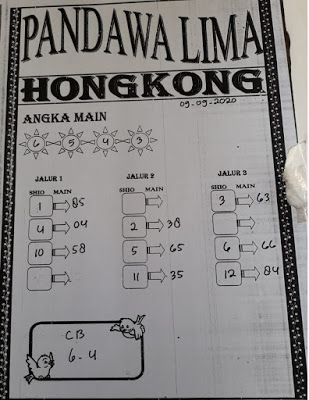 PANDAWA LIMA
HONGKONG
09-09-2020
ANGKA MAIN
6 5 4 3
JALUR 1
SHIO MAIN
1 85
4 04
10 58
JALUR 2
SHIO MAIN
2 38
5 65
11 35
JALUR 3
SHIO MAIN
3 63
6 66
12 84
CB
6-4